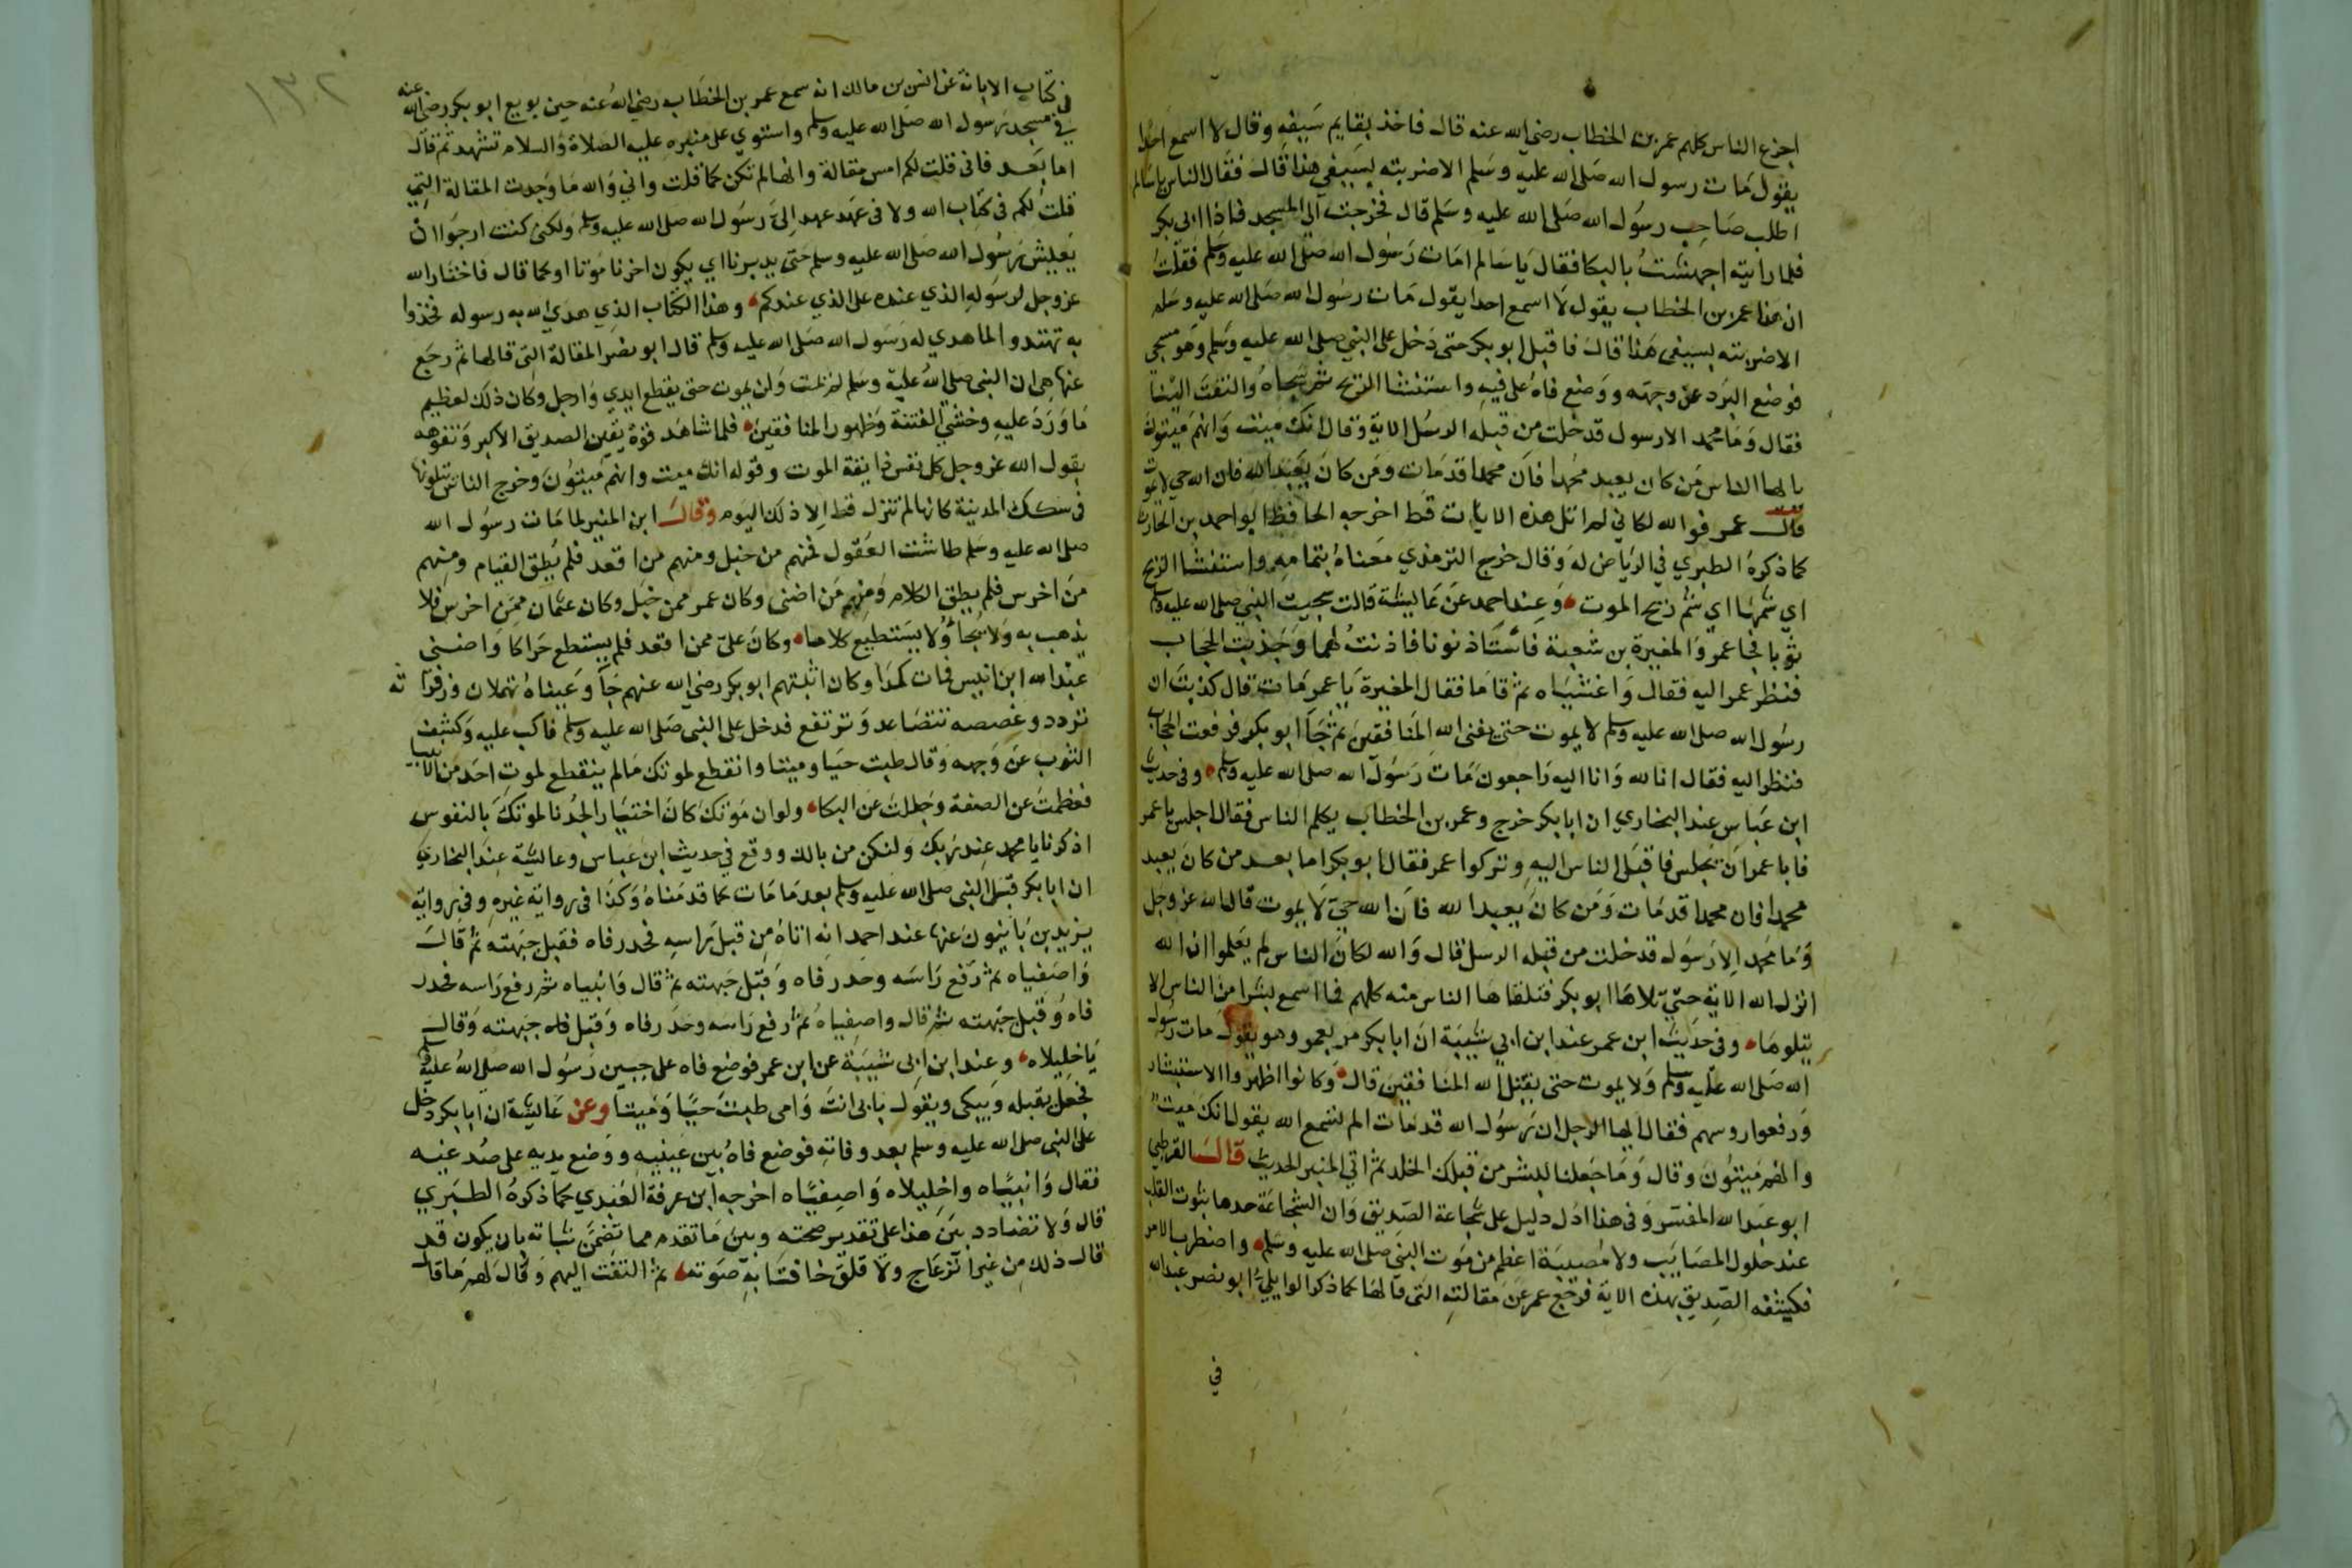 اجزع الناس كلهم عمر بن الخطاب رضي الله عنه قال فاخذ بقايم سيفه وقال لا اسمع احدا
يقول مات رسول الله صلى الله عليه وسلم الا ضربته بسيفي هذا قال فقال الناس يا سالم
اطلب صاحب رسول الله صلى الله عليه وسلم قال فخرجت الي المسجد فاذا ابي بكر
فلما رايته اجهشت بالبكا فقال يا سالم امات رسول الله صلى الله عليه وسلم فقلت
ان هذا عمر بن الخطاب يقول لا اسمع احدا يقول مات رسول الله صلى الله عليه وسلم
الا ضربته بسيفي هذا قال فاقبل ابو بكر حتى دخل على النبي صلى الله عليه وسلم وهو مسجي
فوضع البرد عن وجهه ووضع فاه على فيه واستنشا الريح ثم سجاه والتفت الينا
فقال وما محمد الا رسول قد خلت من قبله الرسل الاية وقال انك ميت وانهم ميتون
يا ايها الناس من كان يعبد محمدا فان محمدا قد مات ومن كان يعبد الله فان الله حي لا يموت
قال عمر فو الله لكاني لم اتل هذه الايات قط اخرجه الحافظ ابو احمد بن الحارث
كما ذكره الطبري في الرياض له وقال خرج الترمذي معناه بتمامه واستنشا الريح
اي شمها اي شم ريح الموت وعند احمد عن عايشة قالت سجيت النبي صلى الله عليه وسلم
ثوبا فجا عمر والمغيرة بن شعبة فاستاذنونا فاذنت لهما وجذبت الحجاب
فنظر عمر اليه فقال واغشياه ثم قاما فقال المغيرة يا عمر مات قال كذبت ان
رسول الله صلى الله عليه وسلم لا يموت حتى يفنى الله المنافقين ثم جا ابو بكر فرفعت الحجاب
فنظر اليه فقال انا لله وانا اليه راجعون مات رسول الله صلى الله عليه وسلم وفي حديث
ابن عباس عند البخاري ان ابا بكر خرج وعمر بن الخطاب يكلم الناس فقال اجلس يا عمر
فابا عمر ان يجلس فاقبل الناس اليه وتركوا عمر فقال ابو بكر اما بعد من كان يعبد
محمدا فان محمدا قد مات ومن كان يعبد الله فان الله حي لا يموت قال الله عز وجل
وما محمد الا رسول قد خلت من قبله الرسل قال والله لكان الناس لم يعلموا ان الله
انزل الله الاية حتي تلاها ابو بكر فتلقاها الناس منه كلهم فما اسمع بشرا من الناس الا
يتلوها وفي حديث ابن عمر عند ابن ابي شيبة ان ابا بكر مر بعمر وهو يقول مات رسول
الله صلى الله عليه وسلم ولا يموت حتى يقتل الله المنافقين قال وكانوا اظهروا الاستبشار
ورفعوا روسهم فقال ايها الرجل ان رسول الله قد مات الم تسمع الله يقول انك ميت
وانهم ميتون وقال وما جعلنا لبشر من قبلك الخلد ثم اتي المنبر الحديث قال القرطبي
ابو عبد الله المفسر وفي هذا ادل دليل على شجاعة الصديق وان الشجاعة حدها ثبوت القلب
عند حلول المصايب ولا مصيبة اعظم من موت النبي صلى الله عليه وسلم واضطرب الامر
فكشفه الصديق بهذه الاية فرجع عمر عن مقالته التي قالها كما ذكر الوايلي ابو نصر عبد الله
في
في كتاب الابانة عن انس بن مالك انه سمع عمر بن الخطاب رضي الله عنه حين بويع ابو بكر رضي الله عنه
في مسجد رسول الله صلى الله عليه وسلم واستوي على منبره عليه الصلاة والسلام تشهد ثم قال
اما بعد فاني قلت لكم امس مقالة وانها لم تكن كما قلت واني والله ما وجدت المقالة التي
قلت لكم في كتاب الله ولا في عهد عهد الي رسول الله صلى الله عليه وسلم ولكني كنت ارجوا ان
يعيش رسول الله صلى الله عليه وسلم حتى يدبرنا اي يكون اخرنا موتا او كما قال فاختار الله
عز وجل لرسوله الذي عنده على الذي عندكم وهذا الكتاب الذي هدي الله به رسوله فخذوا
به تهتدوا لما هدي له رسول الله صلى الله عليه وسلم قال ابو نصر المقالة التي قالها ثم رجع
عنها هي ان النبي صلى الله عليه وسلم لم يمت ولن يموت حتى يقطع ايدي وارجل وكان ذلك لعظيم
ما ورد عليه وخشي الفتنة وظهور المنافقين فلما شاهد قوة يقين الصديق الاكبر وتفوهه
بقول الله عز وجل كل نفس ذايقة الموت وقوله انك ميت وانهم ميتون وخرج الناس يتلونها
في سكك المدينة كانها لم تنزل قط الا ذلك اليوم وقال ابن المنير لما مات رسول الله
صلى الله عليه وسلم طاشت العقول فمنهم من خبل ومنهم من اقعد فلم يطق القيام ومنهم
من اخرس فلم يطق الكلام ومنهم من اضنى وكان عمر ممن خبل وكان عثمان ممن اخرس فلا
يذهب به ولا يجا ولا يستطيع كلاما وكان علي ممن اقعد فلم يستطع حراكا واضنى
عبد الله ابن انيس فمات كمدا وكان اثبتهم ابو بكر رضي الله عنهم جا وعيناه تهملان وزفراته
تردد وغصصه تتصاعد وترتفع فدخل على النبي صلى الله عليه وسلم فاكب عليه وكشف
الثوب عن وجهه وقال طبت حيا وميتا وانقطع لموتك ما لم ينقطع لموت احد من الانبيا
فعظمت عن الصفة وجللت عن البكا ولو ان موتك كان اختيارا لجدنا لموتك بالنفوس
اذكرنا يا محمد عند ربك ولنكن من بالك ووقع في حديث ابن عباس وعايشة عند البخاري
ان ابا بكر قبل النبي صلى الله عليه وسلم بعد ما مات كما قدمناه وكذا في رواية غيره وفي رواية
يزيد بن بابنوس عنها عند احمد انه اتاه من قبل راسه فحدر فاه فقبل جبهته ثم قال
واصفياه ثم رفع راسه وحدر فاه وقبل جبهته ثم قال وانبياه ثم رفع راسه فحدر
فاه وقبل جبهته ثم قال واصفياه ثم رفع راسه وحدر فاه وقبل فاه جبهته وقال
يا خليلاه وعند ابن ابي شيبة عن ابن عمر فوضع فاه على جبين رسول الله صلى الله عليه وسلم
فجعل يقبله ويبكي ويقول بابي انت وامي طبت حيا وميتا وعن عايشة ان ابا بكر دخل
على النبي صلى الله عليه وسلم بعد وفاته فوضع فاه بين عينيه ووضع يديه على صدغيه
فقال وانبياه واخليلاه واصفياه اخرجه ابن عرفة العبدي كما ذكره الطبري
قال ولا تضادد بين هذا على تقدير صحته وبين ما تقدم مما تضمن ثباته بان يكون قد
قال ذلك من غير انزعاج ولا قلق خافتا به صوته ثم التفت اليهم وقال لهم ما قال